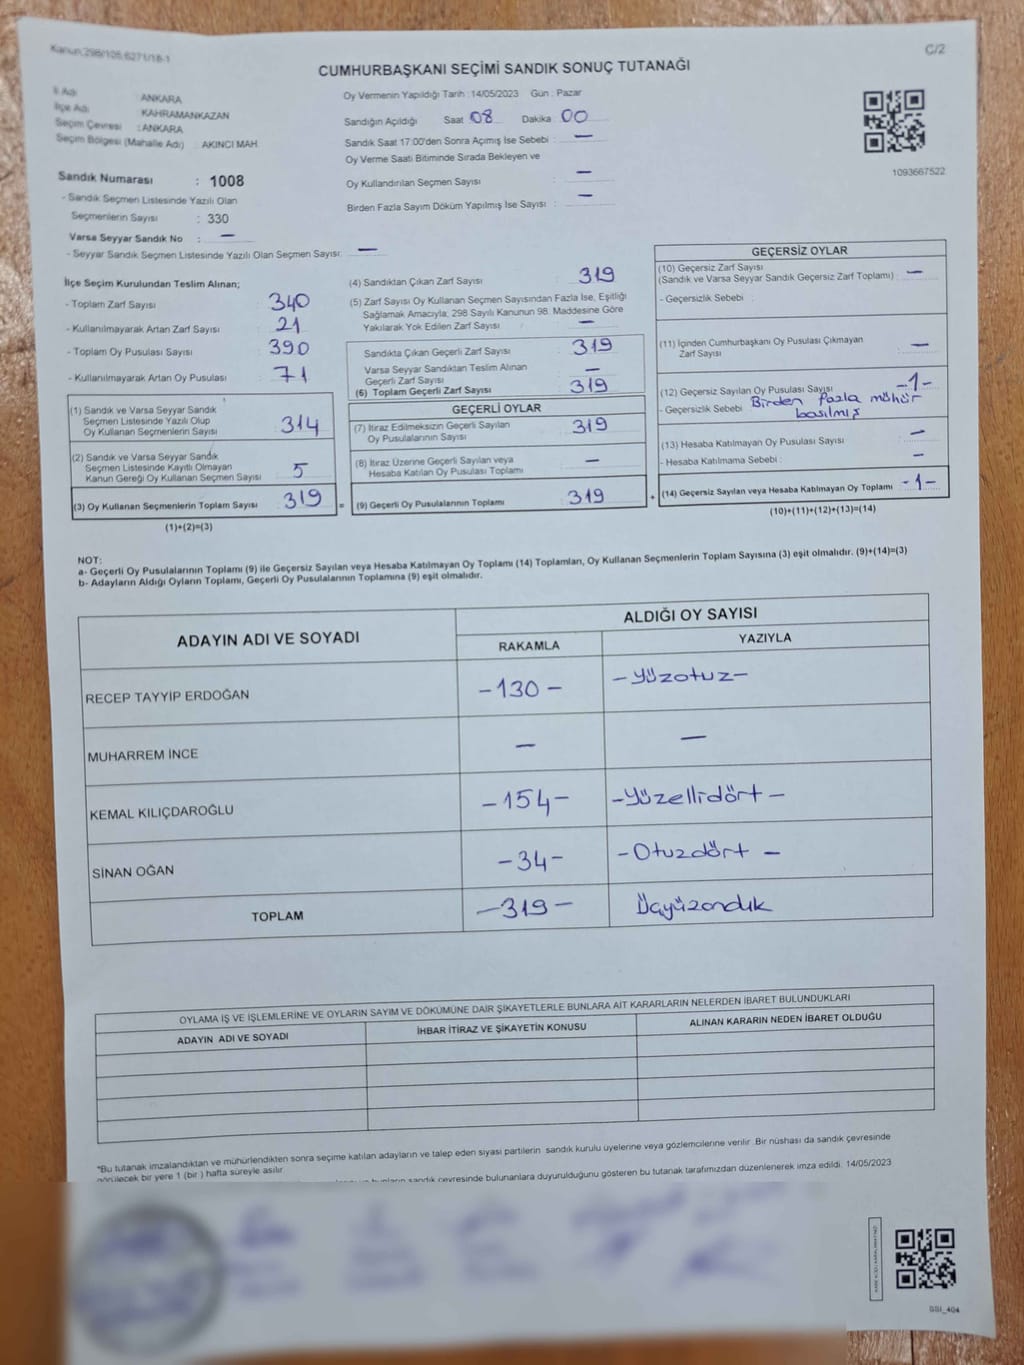 Kanun:298/105,6271/18-1
C/2
CUMHURBAŞKANI SEÇİMİ SANDIK SONUÇ TUTANAĞI
İl Adı : ANKARA
İlçe Adı : KAHRAMANKAZAN
Seçim Çevresi : ANKARA
Seçim Bölgesi (Mahalle Adı) : AKINCI MAH.
Sandık Numarası : 1008
- Sandık Seçmen Listesinde Yazılı Olan
Seçmenlerin Sayısı : 330
Varsa Seyyar Sandık No : —
- Seyyar Sandık Seçmen Listesinde Yazılı Olan Seçmen Sayısı: —
Oy Vermenin Yapıldığı Tarih :14/05/2023 Gün : Pazar
Sandığın Açıldığı Saat 08 Dakika 00
Sandık Saat 17:00'den Sonra Açımış İse Sebebi : —
Oy Verme Saati Bitiminde Sırada Bekleyen ve
Oy Kullandırılan Seçmen Sayısı : —
Birden Fazla Sayım Döküm Yapılmış İse Sayısı : —
1093667522
İlçe Seçim Kurulundan Teslim Alınan;
- Toplam Zarf Sayısı : 340
- Kullanılmayarak Artan Zarf Sayısı : 21
- Toplam Oy Pusulası Sayısı : 390
- Kullanılmayarak Artan Oy Pusulası : 71
(1) Sandık ve Varsa Seyyar Sandık
Seçmen Listesinde Yazılı Olup
Oy Kullanan Seçmenlerin Sayısı : 314
(2) Sandık ve Varsa Seyyar Sandık
Seçmen Listesinde Kayıtlı Olmayan
Kanun Gereği Oy Kullanan Seçmen Sayısı : 5
(3) Oy Kullanan Seçmenlerin Toplam Sayısı : 319
(1)+(2)=(3)
(4) Sandıktan Çıkan Zarf Sayısı : 319
(5) Zarf Sayısı Oy Kullanan Seçmen Sayısından Fazla İse, Eşitliği
Sağlamak Amacıyla, 298 Sayılı Kanunun 98. Maddesine Göre
Yakılarak Yok Edilen Zarf Sayısı : —
Sandıkta Çıkan Geçerli Zarf Sayısı : 319
Varsa Seyyar Sandıktan Teslim Alınan
Geçerli Zarf Sayısı : —
(6) Toplam Geçerli Zarf Sayısı : 319
GEÇERLİ OYLAR
(7) İtiraz Edilmeksizin Geçerli Sayılan
Oy Pusulalarının Sayısı : 319
(8) İtiraz Üzerine Geçerli Sayılan veya
Hesaba Katılan Oy Pusulası Toplamı : —
= (9) Geçerli Oy Pusulalarının Toplamı : 319
GEÇERSİZ OYLAR
(10) Geçersiz Zarf Sayısı
(Sandık ve Varsa Seyyar Sandık Geçersiz Zarf Toplamı) : —
- Geçersizlik Sebebi :
(11) İçinden Cumhurbaşkanı Oy Pusulası Çıkmayan
Zarf Sayısı : —
(12) Geçersiz Sayılan Oy Pusulası Sayısı : -1-
- Geçersizlik Sebebi : Birden fazla mühür
basılmış
(13) Hesaba Katılmayan Oy Pusulası Sayısı : —
- Hesaba Katılmama Sebebi : —
+ (14) Geçersiz Sayılan veya Hesaba Katılmayan Oy Toplamı : -1-
(10)+(11)+(12)+(13)=(14)
NOT:
a- Geçerli Oy Pusulalarının Toplamı (9) ile Geçersiz Sayılan veya Hesaba Katılmayan Oy Toplamı (14) Toplamları, Oy Kullanan Seçmenlerin Toplam Sayısına (3) eşit olmalıdır. (9)+(14)=(3)
b- Adayların Aldığı Oyların Toplamı, Geçerli Oy Pusulalarının Toplamına (9) eşit olmalıdır.
ADAYIN ADI VE SOYADI
ALDIĞI OY SAYISI
RAKAMLA YAZIYLA
RECEP TAYYİP ERDOĞAN -130- -Yüzotuz-
MUHARREM İNCE — —
KEMAL KILIÇDAROĞLU -154- -Yüzellidört-
SİNAN OĞAN -34- -Otuzdört-
TOPLAM -319- Üçyüzondık
OYLAMA İŞ VE İŞLEMLERİNE VE OYLARIN SAYIM VE DÖKÜMÜNE DAİR ŞİKAYETLERLE BUNLARA AİT KARARLARIN NELERDEN İBARET BULUNDUKLARI
ADAYIN ADI VE SOYADI İHBAR İTİRAZ VE ŞİKAYETİN KONUSU ALINAN KARARIN NEDEN İBARET OLDUĞU
*Bu tutanak imzalandıktan ve mühürlendikten sonra seçime katılan adayların ve talep eden siyasi partilerin sandık kurulu üyelerine veya gözlemcilerine verilir. Bir nüshası da sandık çevresinde
görülecek bir yere 1 (bir ) hafta süreyle asılır.
bunların sandık çevresinde bulunanlara duyurulduğunu gösteren bu tutanak tarafımızdan düzenlenerek imza edildi. 14/05/2023
GSI_404